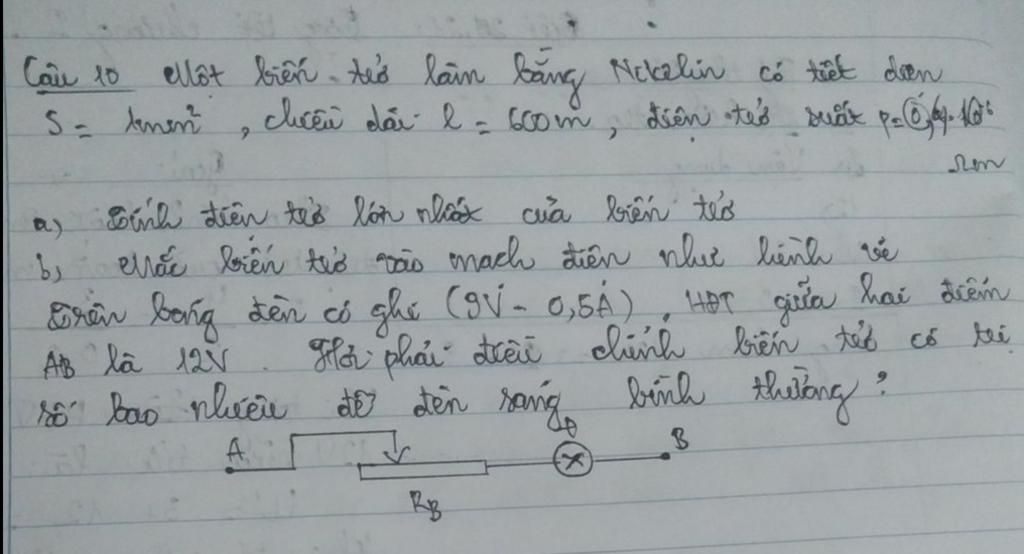 Câu 10 Một biến trở làm bằng Nckelin có tiết diện
S = 1mm², chiều dài l = 600m, điện trở suất ρ = 0,4.10⁻⁶
Ωm
a, Tính điện trở lớn nhất của biến trở
b, Mắc biến trở vào mạch điện như hình vẽ
Trên bóng đèn có ghi (9V - 0,5A), HĐT giữa hai điểm
AB là 12V. Hỏi phải điều chỉnh biến trở có trị
số bao nhiêu để đèn sáng bình thường?
A Đ B
R_B